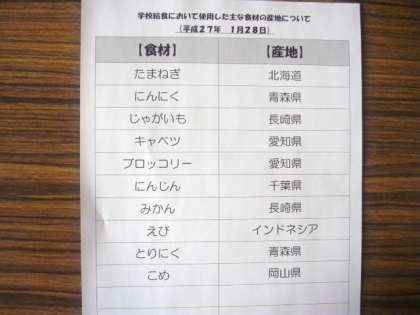 学校給食において使用した主な食材の産地について
（平成27年　1月28日）
【食材】　【産地】
たまねぎ　北海道
にんにく　青森県
じゃがいも　長崎県
キャベツ　愛知県
ブロッコリー　愛知県
にんじん　千葉県
みかん　長崎県
えび　インドネシア
とりにく　青森県
こめ　岡山県